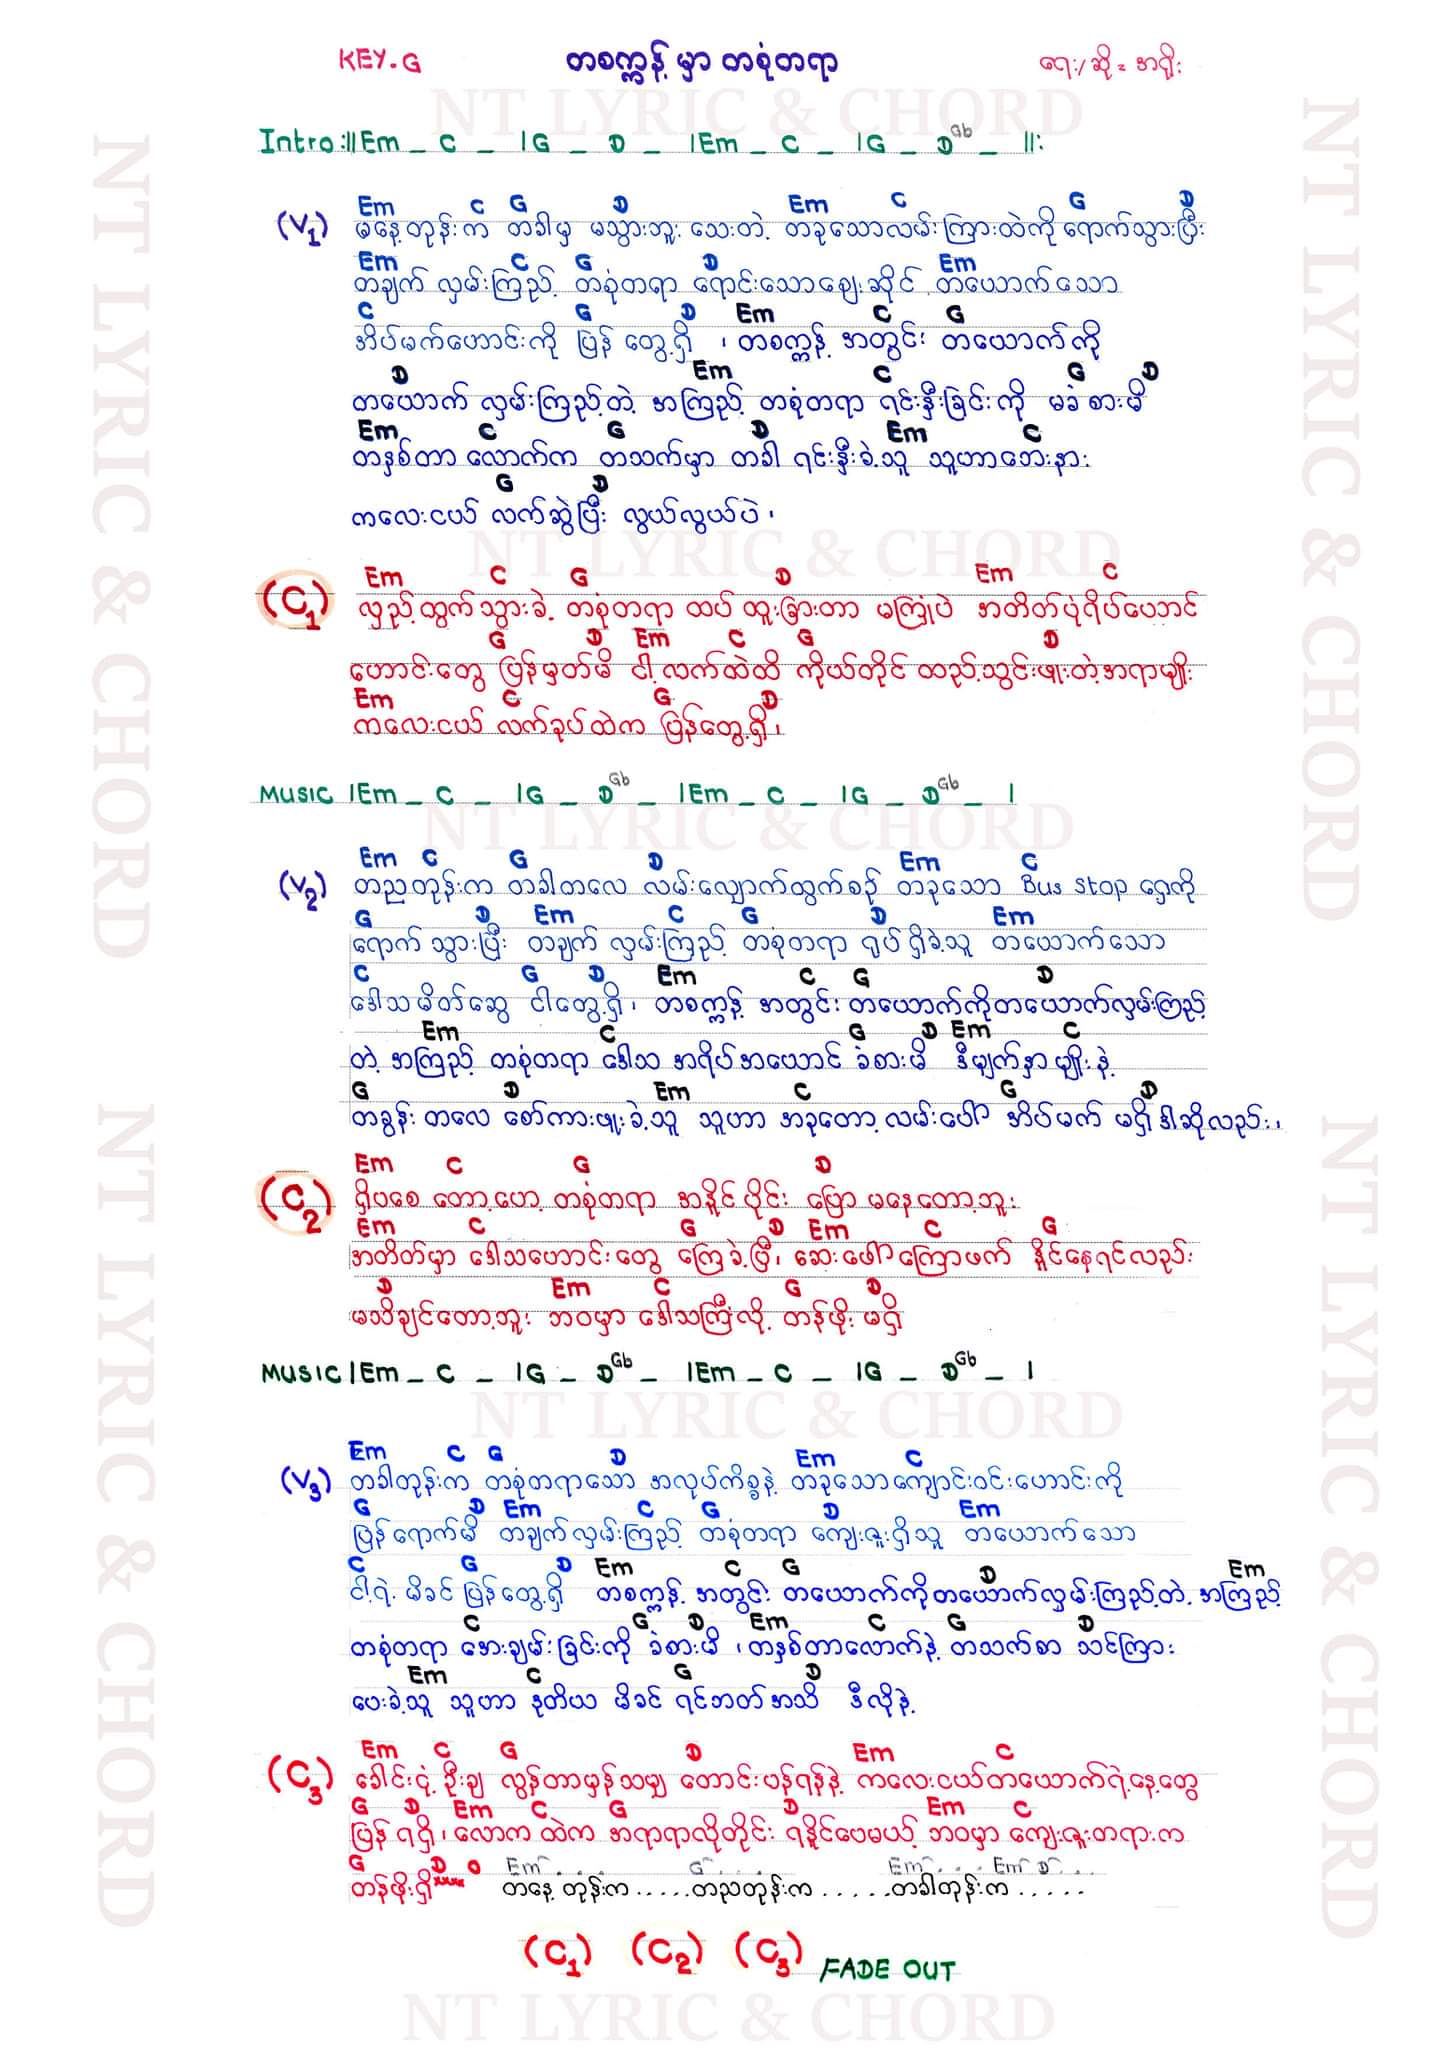 KEY.G တစက္ကန့် မှာ တစုံတရာ ရေး/ဆို = အရိုး
NT LYRIC & CHORD
Intro :|| Em _ C _ | G _ D _ | Em _ C _ | G _ D Gb _ ||:
Em C G D Em C G D
(V1) မနေ့တုန်းက တခါမှ မသွားဘူး သေးတဲ့ တခုသောလမ်းကြားထဲကို ရောက်သွားပြီး
Em C G D Em
တချက် လှမ်းကြည့် တစုံတရာ ရောင်းသောဈေးဆိုင် တယောက်သော
C G D Em C G
အိပ်မက်ဟောင်းကို ပြန် တွေ့ရှိ ၊ တစက္ကန့် အတွင်း တယောက်ကို
D Em C G D
တယောက် လှမ်းကြည့်တဲ့ အကြည့် တစုံတရာ ရင်းနှီးခြင်းကို မခံ စားမိ
Em C G D Em C
တနှစ်တာ လောက်က တသက်မှာ တခါ ရင်းနှီးခဲ့သူ သူဟာဘေးနား
G D
ကလေးငယ် လက်ဆွဲပြီး လွယ်လွယ်ပဲ ၊
NT LYRIC & CHORD
Em C G D Em C
(C1) လှည့်ထွက်သွားခဲ့ တစုံတရာ ထပ် ထူးခြားတာ မကြုံပဲ အတိတ်ပုံရိပ်ယောင်
G D Em C G D
ဟောင်းတွေ ပြန်မှတ်မိ ငါ့လက်ထဲထိ ကိုယ်တိုင် ထည့်သွင်းဖူးတဲ့အရာမျိုး
Em C G D
ကလေးငယ် လက်ခုပ်ထဲက ပြန်တွေ့ရှိ ၊
MUSIC | Em _ C _ | G _ D Gb _ | Em _ C _ | G _ D Gb _ |
NT LYRIC & CHORD
Em C G D Em C
(V2) တညတုန်းက တခါတလေ လမ်းလျှောက်ထွက်စဉ် တခုသော Bus Stop ရှေ့ကို
G D Em C G D Em
ရောက်သွားပြီး တချက် လှမ်းကြည့် တစုံတရာ ရုပ်ရှိခဲ့သူ တယောက်သော
C G D Em C G D
ဒေါသမိတ်ဆွေ ငါတွေ့ရှိ ၊ တစက္ကန့် အတွင်း တယောက်ကိုတယောက်လှမ်းကြည့်
Em C G D Em C
တဲ့ အကြည့် တစုံတရာ ဒေါသ အရိပ်အယောင် ခံစားမိ ဒီမျက်နှာမျိုးနဲ့
G D Em C G D
တခွန်း တလေ စော်ကားဖူးခဲ့သူ သူဟာ အခုတော့ လမ်းပေါ် အိပ်မက် မရှိ ဒါဆိုလည်း၊
Em C G D
(C2) ရှိပါစေ တော့ဟေ့ တစုံတရာ အနိုင်ပိုင်း ပြော မနေတော့ဘူး
Em C G D Em C G
အတိတ်မှာ ဒေါသဟောင်းတွေ ကြေခဲ့ပြီ၊ ဆေးဖော်ကြောဖက် နှိုင်နေရင်လည်း
D Em C G D
မသိချင်တော့ဘူး ဘဝမှာ ဒေါသကြီးလို့ တန်ဖိုး မရှိ
MUSIC | Em _ C _ | G _ D Gb _ | Em _ C _ | G _ D Gb _ |
NT LYRIC & CHORD
Em C G D Em C
(V3) တခါတုန်းက တစုံတရာသော အလုပ်ကိစ္စနဲ့ တခုသောကျောင်းဝင်းဟောင်းကို
G D Em C G D Em
ပြန်ရောက်မိ တချက်လှမ်းကြည့် တစုံတရာ ကျေးဇူးရှိသူ တယောက်သော
C G D Em C G D Em
ငါ့ရဲ့ မိခင် ပြန်တွေ့ရှိ တစက္ကန့် အတွင်း တယောက်ကိုတယောက်လှမ်းကြည့်တဲ့ အကြည့်
C G D Em C G D
တစုံတရာ အေးချမ်းခြင်းကို ခံစားမိ ၊ တနှစ်တာလောက်နဲ့ တသက်စာ သင်ကြား
Em C G D
ပေးခဲ့သူ သူဟာ ဒုတိယ မိခင် ရင်ဘတ်အသိ ဒီလိုနဲ့
Em C G D Em C
(C3) ခေါင်းငုံ့ ဦးချ လွန်တာမှန်သမျှ တောင်းပန်ရန်နဲ့ ကလေးငယ်တယောက်ရဲ့နေ့တွေ
G D Em C G D Em C
ပြန် ရရှိ ၊ လောက ထဲက အရာရာလိုတိုင်း ရနိုင်ပေမယ့် ဘဝမှာ ကျေးဇူးတရားက
G D Em G Em Em D
တန်ဖိုးရှိ တနေ့ တုန်းက ..... တညတုန်းက ..... တခါတုန်းက .....
(C1) (C2) (C3) FADE OUT
NT LYRIC & CHORD
NT LYRIC & CHORD
NT LYRIC & CHORD
NT LYRIC & CHORD
NT LYRIC & CHORD